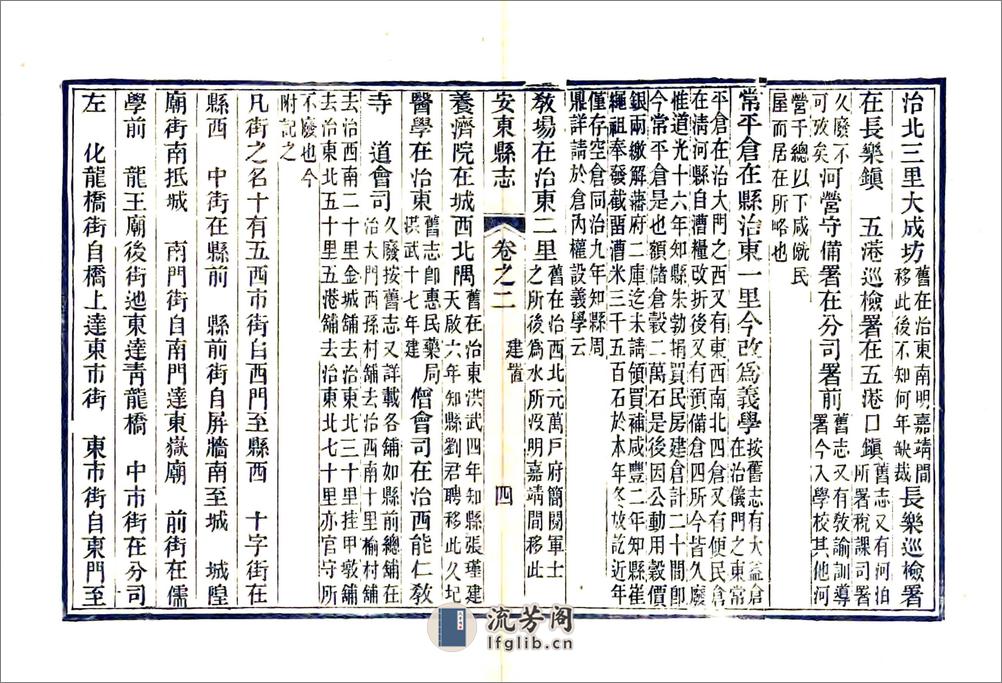 治北三里大成坊舊在治東南明嘉靖間移此後不知何年缺裁長樂巡檢署
在長樂鎮　五港巡檢署在五港口鎮舊志又有河泊所署稅課司署
久廢不可攷矣河營守備署在分司署前舊志又有敎諭訓導署今入學校其他河
營千總以下咸僦民屋而居在所略也
常平倉在縣治東一里今改爲義學按舊志有大益倉在治儀門之東常
平倉在治大門之西又有東西南北四倉又有便民倉
在淸河縣自漕糧改折後又有預備倉四所今皆久廢
惟道光十六年知縣朱勃捐買民房建倉計二十間卽
今常平倉是也額儲倉穀二萬石是後因公動用穀價
銀兩繳解藩府二庫迄未請領買補咸豐二年知縣崔
繩祖奉發截畱漕米三千五百石於本年冬放訖近年
僅存空倉同治九年知縣周
鼎詳請於倉內權設義學云
敎場在治東二里舊在治西北元萬戶府簡閱軍士之所後爲水所沒明嘉靖間移此
安東縣志　卷之二　建置　四
養濟院在城西北隅舊在治東洪武四年知縣張瑾建天啟六年知縣劉君聘移此久圮
醫學在治東舊志卽惠民藥局洪武十七年建　僧會司在治西能仁敎
寺　道會司久廢按舊志又詳載各鋪如縣前總鋪在治大門西孫村鋪去治西南十里榆村鋪
去治西南二十里金城鋪去治東北三十里挂甲墩鋪
去治東北五十里五港鋪去治東北七十里亦官守所
不廢也今附記之
凡街之名十有五西市街自西門至縣西　十字街在
縣西　中街在縣前　縣前街自屏牆南至城　城隍
廟街南抵城　南門街自南門達東嶽廟　前街在儒
學前　龍王廟後街迆東達靑龍橋　中市街在分司
左　化龍橋街自橋上達東市街　東市街自東門至
流芳阁
lfglib.cn